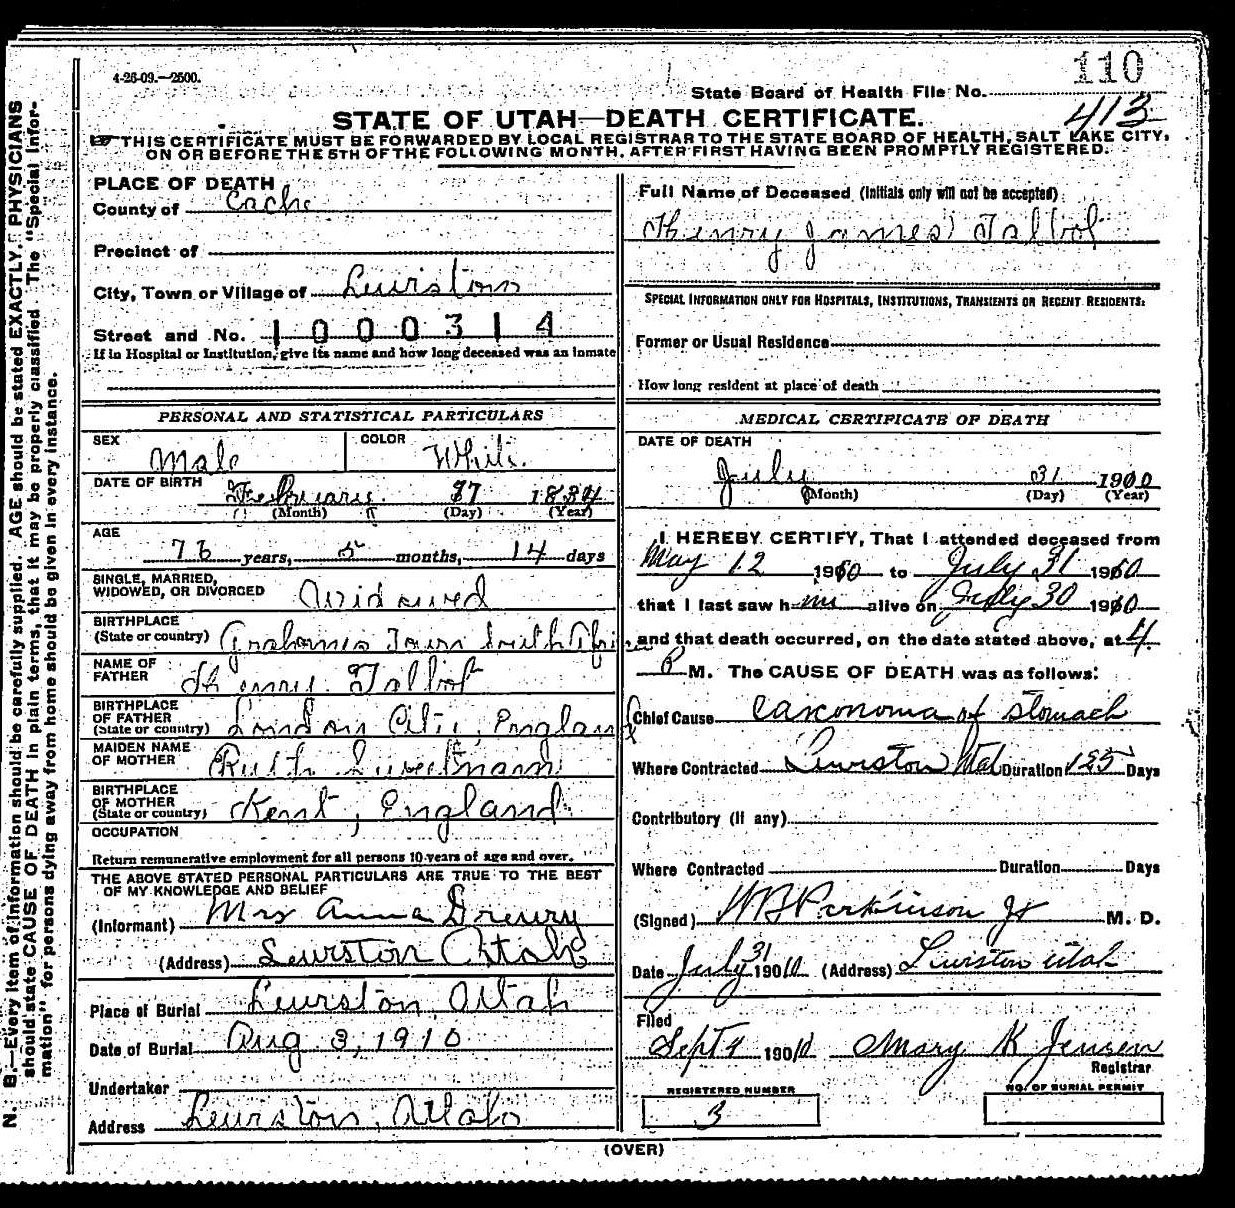 4-26-09.—2500.
110
State Board of Health File No.
413
STATE OF UTAH—DEATH CERTIFICATE.
THIS CERTIFICATE MUST BE FORWARDED BY LOCAL REGISTRAR TO THE STATE BOARD OF HEALTH, SALT LAKE CITY,
ON OR BEFORE THE 5TH OF THE FOLLOWING MONTH, AFTER FIRST HAVING BEEN PROMPTLY REGISTERED.
N. B.—Every item of information should be carefully supplied. AGE should be stated EXACTLY. PHYSICIANS
should state CAUSE OF DEATH in plain terms, that it may be properly classified. The "Special Infor-
mation" for persons dying away from home should be given in every instance.
PLACE OF DEATH
County of Cache
Precinct of
City, Town or Village of Lewiston
Street and No. 1000314
If in Hospital or Institution, give its name and how long deceased was an inmate
PERSONAL AND STATISTICAL PARTICULARS
SEX Male COLOR White.
DATE OF BIRTH February 27 1834
(Month) (Day) (Year)
AGE
76 years, 5 months, 14 days
SINGLE, MARRIED,
WIDOWED, OR DIVORCED Widowed
BIRTHPLACE
(State or country) Grahames Town South Africa
NAME OF
FATHER Henry Talbot
BIRTHPLACE
OF FATHER
(State or country) London City, England
MAIDEN NAME
OF MOTHER Ruth Sweetnam
BIRTHPLACE
OF MOTHER
(State or country) Kent, England
OCCUPATION
Return remunerative employment for all persons 10 years of age and over.
THE ABOVE STATED PERSONAL PARTICULARS ARE TRUE TO THE BEST
OF MY KNOWLEDGE AND BELIEF
(Informant) Mrs Anna Drewry
(Address) Lewiston Utah
Place of Burial Lewiston, Utah
Date of Burial Aug 3, 1910
Undertaker
Address Lewiston, Utah
Full Name of Deceased (Initials only will not be accepted)
Henry James Talbot
SPECIAL INFORMATION ONLY FOR HOSPITALS, INSTITUTIONS, TRANSIENTS OR RECENT RESIDENTS:
Former or Usual Residence
How long resident at place of death
MEDICAL CERTIFICATE OF DEATH
DATE OF DEATH
July 31 1910
(Month) (Day) (Year)
I HEREBY CERTIFY, That I attended deceased from
May 12 1910 to July 31 1910
that I last saw him alive on July 30 1910
and that death occurred, on the date stated above, at 4
P M. The CAUSE OF DEATH was as follows:
Chief Cause Carconoma of Stomach
Where Contracted Lewiston Utah Duration 125 Days
Contributory (if any)
Where Contracted Duration Days
(Signed) WB Parkinson Jr M. D.
Date July 31 1910 (Address) Lewiston Utah
Filed
Sept 4 1910 Mary K Jensen
Registrar
REGISTERED NUMBER
3
NO. OF BURIAL PERMIT
(OVER)